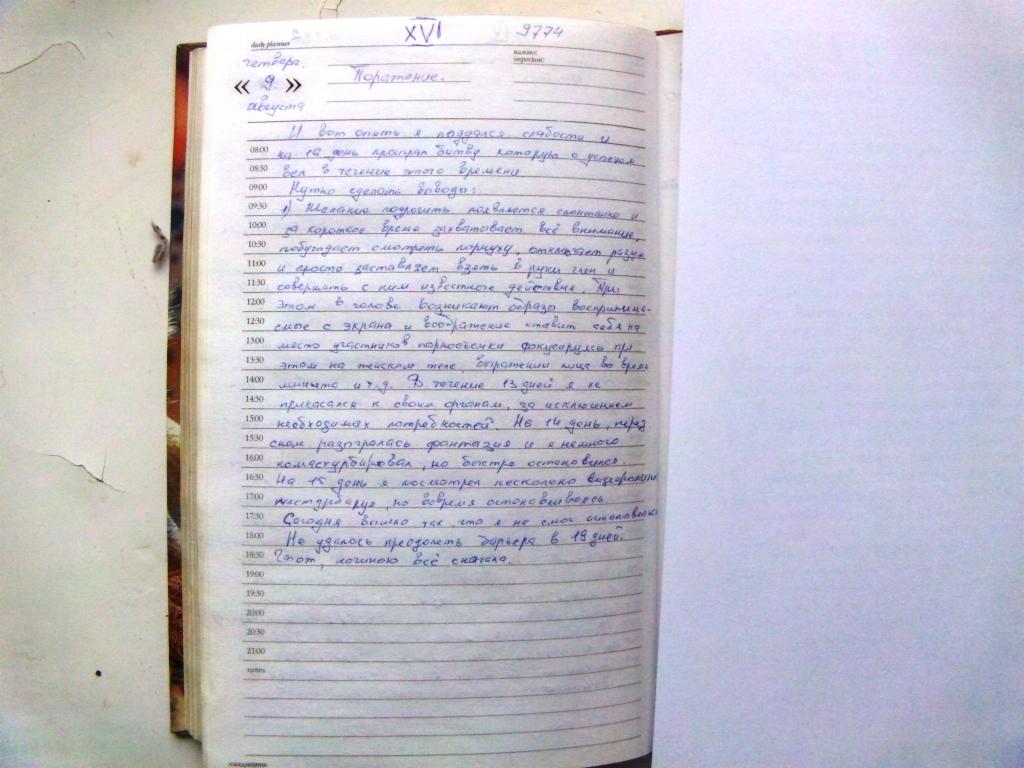 XVI 9774
daily planner
важно:
important:
четверг.
« 9 » Поражение.
августа
И вот опять я поддался слабости и
08:00 на 16 день проиграл битву которую с успехом
08:30 вел в течение этого времени
09:00 Нужно сделать выводы:
09:30 1) Желание подрочить появляется спонтанно и
10:00 за короткое время захватывает всё внимание,
10:30 побуждает смотреть порнуху, отключает разум
11:00 и просто заставляет взять в руки член и
11:30 совершать с ним известное действие. При
12:00 этом в голове возникают образы воспринима-
12:30 емые с экрана и воображение ставит себя на
13:00 место участников порносъёмки фокусируясь при
13:30 этом на женском теле, выражении лица во время
14:00 миньета и т.д. В течение 13 дней я не
14:30 прикасался к своим органам, за исключением
15:00 необходимых потребностей. На 14 день, перед
15:30 сном разыгралась фантазия и я немного
16:00 помастурбировал, но быстро остановился.
16:30 На 15 день я посмотрел несколько видеороликов
17:00 мастурбируя, но вовремя останавливаясь
17:30 Сегодня вышло так, что я не смог остановиться
18:00 Не удалось преодолеть барьера в 19 дней.
18:30 Чтот, начинаю всё сначала.
19:00
19:30
20:00
20:30
21:00
notes